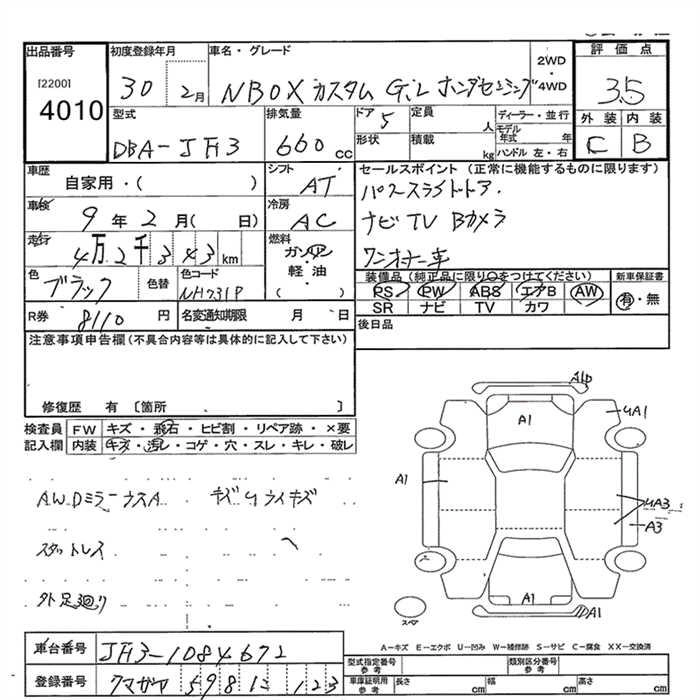 出品番号
[2200]
4010
初度登録年月
30 2月
車名・グレード
NBOXカスタム G.L ホンダセンシング
2WD・4WD
評価点
3.5
外装 内装
C B
型式
DBA-JF3
排気量
660 cc
ドア 5
定員 人
形状
積載 kg
ディーラー・並行
モデル年式 年
ハンドル 左・右
車歴
自家用・( )
シフト
AT
セールスポイント(正常に機能するものに限ります)
パワースライドドア.
ナビ TV Bカメラ
ワンオーナー車
車検
9年 2月( 日)
冷房
AC
走行
4万2千343km
燃料
ガソリン・軽油・( )
色
ブラック
色替
色コード
NH731P
装備品(純正品に限り○をつけてください)
PS PW ABS エアB AW
SR ナビ TV カワ
新車保証書
有・無
R券 8110 円
名変通知期限 月 日
後日品
注意事項申告欄(不具合内容等は具体的に記入して下さい)
修復歴 有 〔箇所 〕
検査員記入欄
FW キズ・飛石・ヒビ割・リペア跡・×要
内装 キズ・汚レ・コゲ・穴・スレ・キレ・破レ
AWDミラーカスA キズUライキズ
スタットレス
外足廻り
A1
A1
A1
A3
A1
スペア
A-キズ E-エクボ U-凹み W-補修跡 S-サビ C-腐食 XX-交換済
車台番号 JF3-1084672
登録番号 クマガヤ 598 123
型式指定番号 参考
類別区分番号 参考
車庫証明用 参考 長さ cm 幅 cm 高さ cm